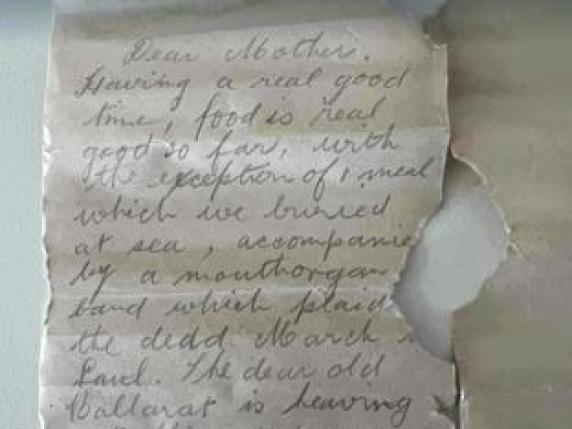 Dear Mother.
Having a real good
time, food is real
good so far, with
the exception of 1 meal
which we buried
at sea, accompanie
by a mouthorgan
band which plaid
the dedd March
Saul. The dear old
Ballarat is heaving